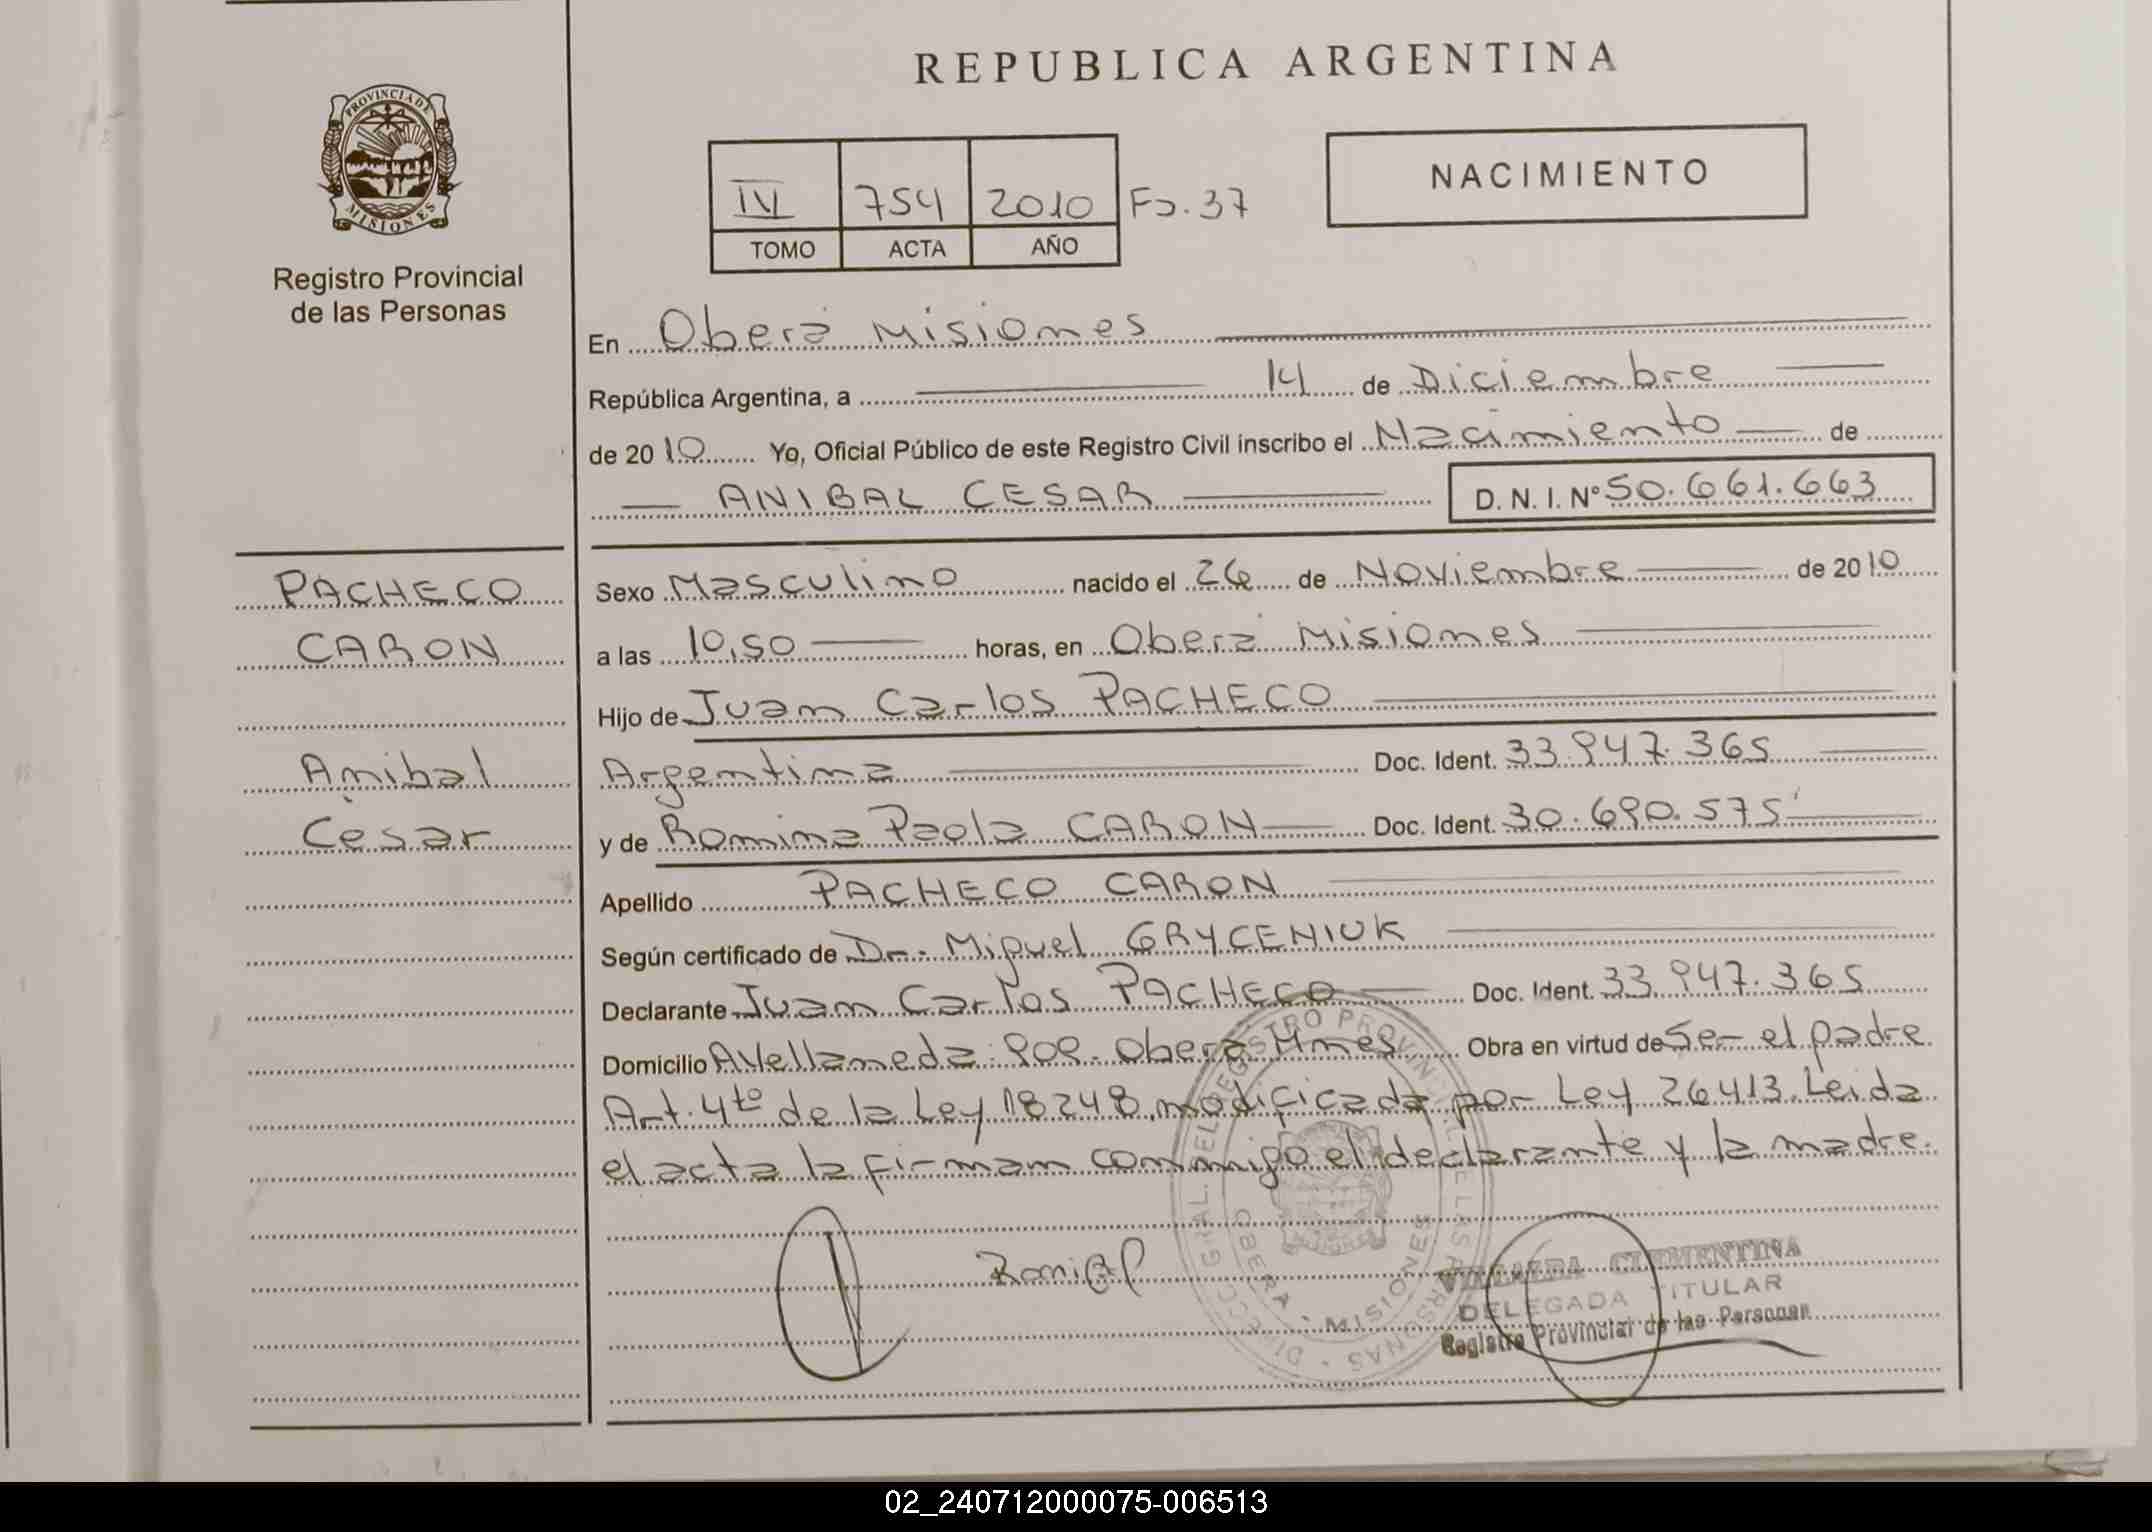 REPUBLICA ARGENTINA
PROVINCIA DE
MISIONES
Registro Provincial
de las Personas
IV 754 2010 Fo. 37
TOMO ACTA AÑO
NACIMIENTO
En Oberá Misiones
República Argentina, a 14 de Diciembre
de 2010 Yo, Oficial Público de este Registro Civil inscribo el Nacimiento de
ANIBAL CESAR D. N. I. N° 50.661.663
PACHECO
CARON
Anibal
Cesar
Sexo Masculino nacido el 26 de Noviembre de 2010
a las 10,50 horas, en Oberá Misiones
Hijo de Juan Carlos PACHECO
Argentina Doc. Ident. 33.947.365
y de Romina Paola CARON Doc. Ident. 30.690.575
Apellido PACHECO CARON
Según certificado de Dr. Miguel GRYCENIUK
Declarante Juan Carlos PACHECO Doc. Ident. 33.947.365
Domicilio Avellaneda 909. Oberá Mnes Obra en virtud de Ser el padre
Art. 4to de la Ley 18248, modificada por Ley 26413. Leida
el acta la firman conmigo el declarante y la madre.
DIRECC. GRAL. DEL REGISTRO PROVINCIAL DE LAS PERSONAS
OBERA - MISIONES
VILLALBA CLEMENTINA
DELEGADA TITULAR
Registro Provincial de las Personas
02_240712000075-006513